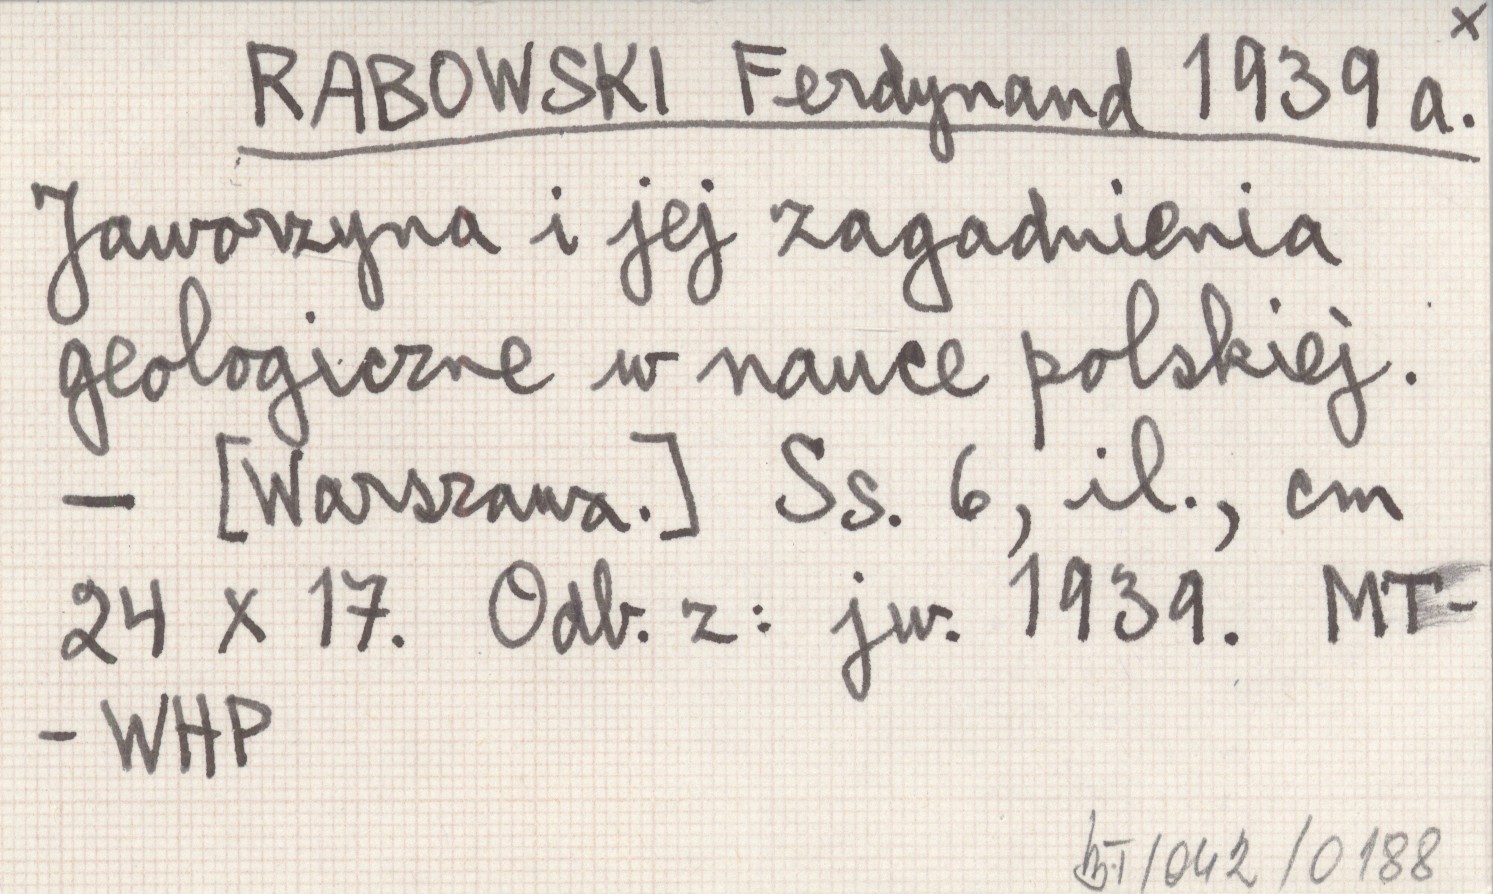 x
RABOWSKI Ferdynand 1939 a.
Jaworzyna i jej zagadnienia
geologiczne w nauce polskiej.
— [Warszawa.] Ss. 6, il., cm
24 x 17. Odb. z: jw. 1939. MT-
- WHP
/042/0188